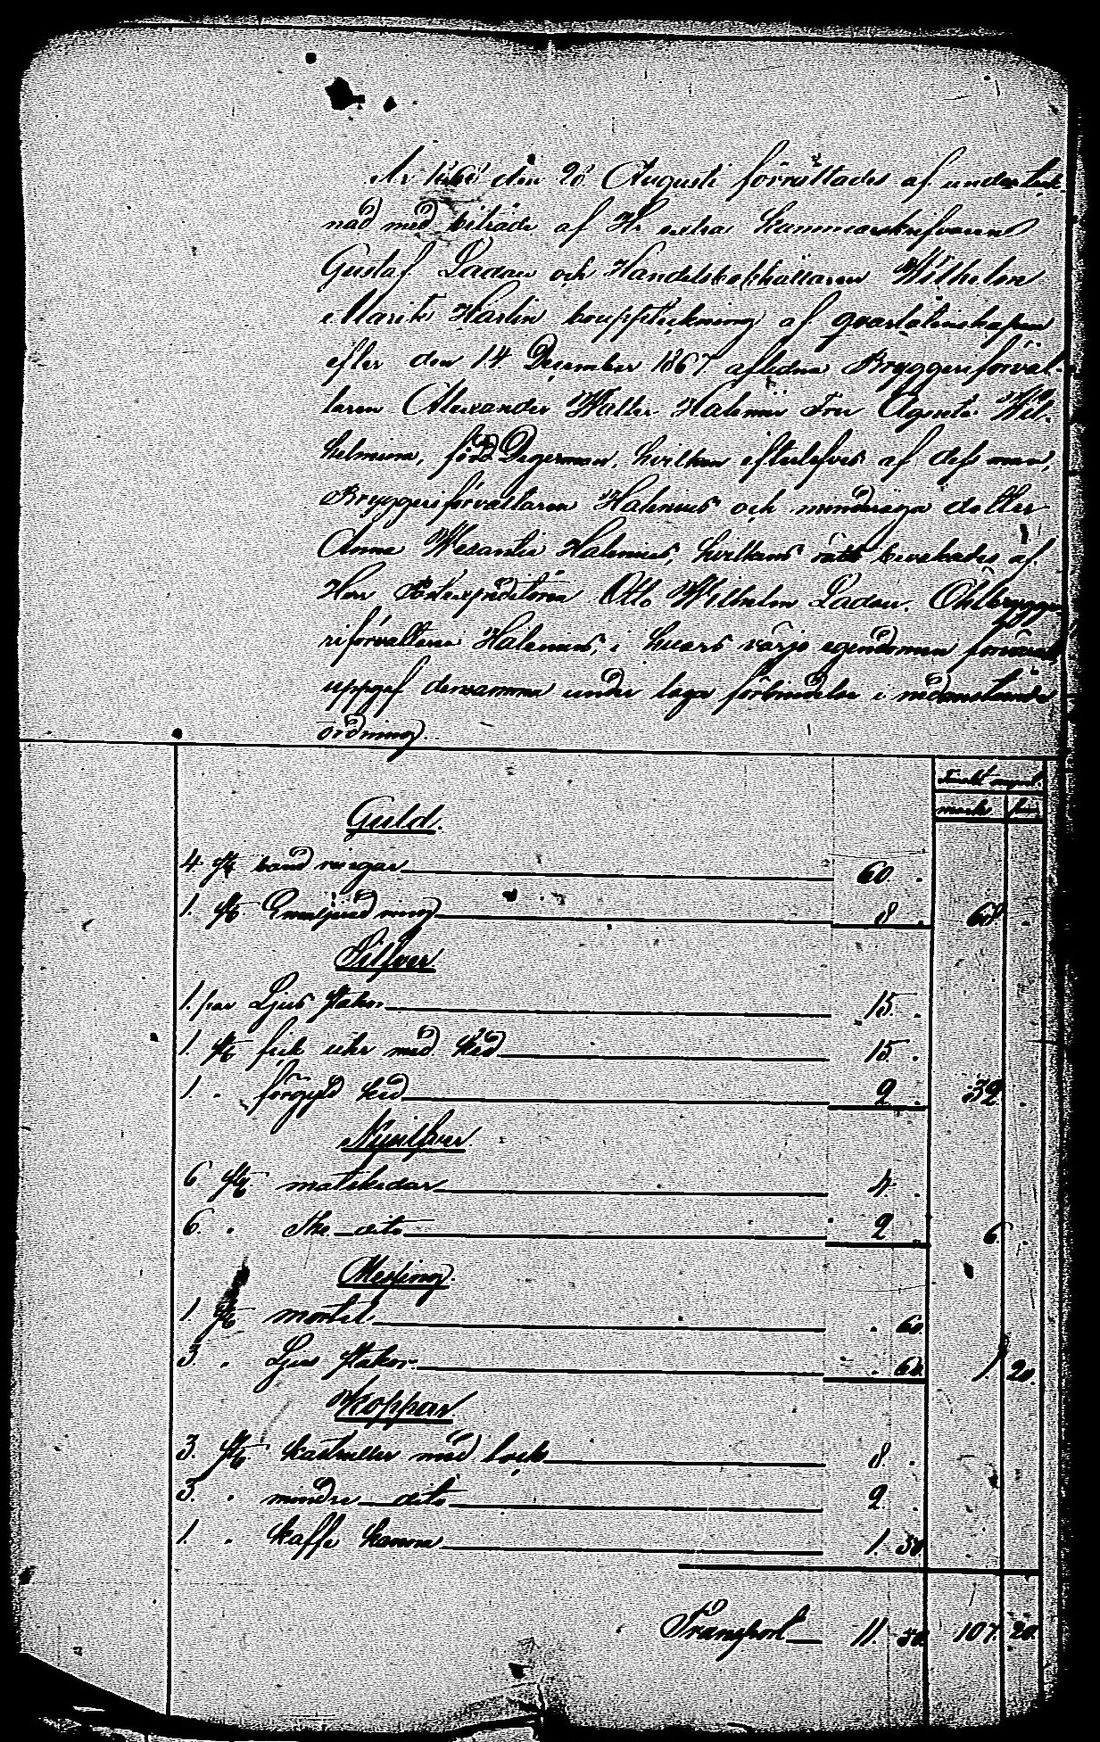 År 1868 den 28 Augusti förrättades af underteck-
nad med biträde af Hr extra Kammarskrifvaren
Gustaf Ladau och Handelsbokhållaren Wilhelm
Marik Harlin bouppteckning af qvarlåtenskapen
efter den 14 December 1867 aflidna Bryggeriförval-
taren Alexander Walter Halenii Fru Agneta Wil-
helmina, född Degerman, hvilken efterlefves af dess man,
Bryggeriförvaltaren Halenius och minderåga dotter
Anna Halenius, hvilkens rätt bevakades af
Herr Otto Wilhelm Ladau. Ölbrygge-
riförvaltaren Halenius, i hvars värjo egendomen
uppgaf densamma under laga förbindelse i nedanstående
ordning.
Finskt mynt.
mark
Guld.
4 st. band ringar 60 .
1. st. Emaljerad ring 8 . 68 .
Silfver
1. par Ljus stakar 15 .
1 st. fick uhr med ked 15 .
1 . förgyld ked 2 . 32 .
Nysilfver
6 st. matskedar 4 .
6. . The dito 2 . 6 .
Messing.
1 st. mortel . 60
3 . Ljus stakar . 60. 1. 20.
Koppar
3. st. kastruller med lock 8 .
3. . mindre dito 2 .
1. . kaffe kanna 1. 50
Transport 11. 50 107. 20.